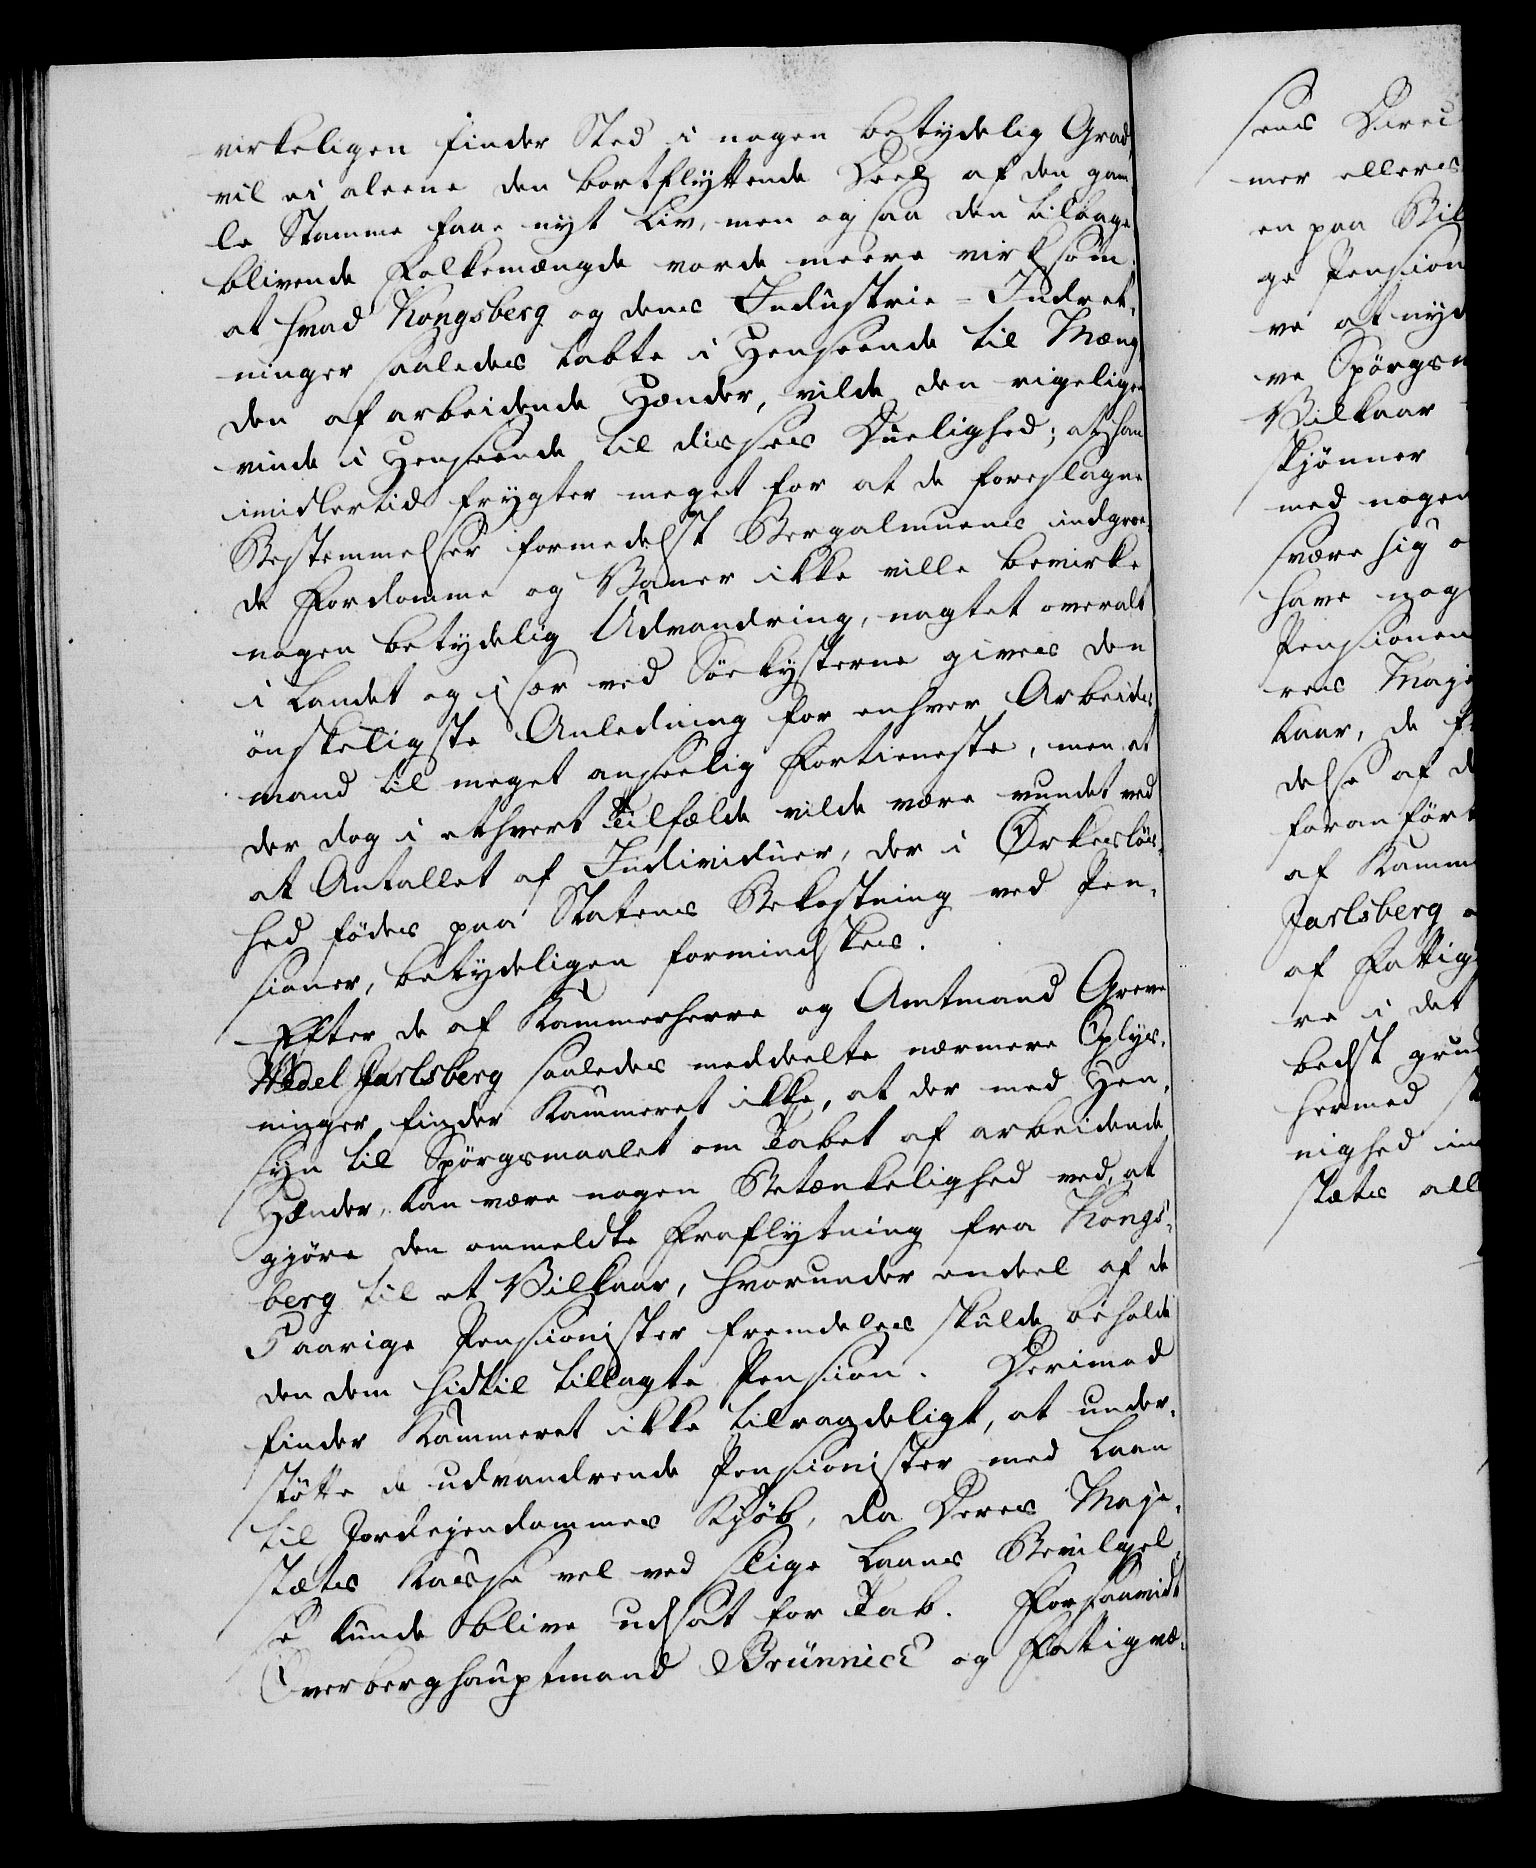 virkeligen finder Sted i nogen betydelig Grad,
vil ei aleene den bortflyttende Deel af den gam
le Stamme faae nyt Liv, men ogsaa den tilbage
blivende Folkemængde vorde meere virksom;
at hvad Kongsberg og dens Industrie-Indret,
ninger saaledes tabte i Henseende til Mæng
den af arbeidende Hænder, vilde den rigeligen
vinde i Henseende til disses Duelighed; at han
imidlertid frygter meget for at de foreslagne
Bestemmelser formedelst Bergalmuens indgroe,
de Fordomme og Vaner ikke ville bevirke
nogen betydelig Udvandring, uagtet overalt
i Landet og især ved Söekysterne gives den
önskeligste Anledning for enhver Arbeids
mand til meget anseelig Fortieneste, men at
der dog i ethvert Tilfælde vilde være vundet ved
at Antallet af Individuer, der i Ørkeslös,
hed födes paa Statens Bekostning ved Pen,
sioner, betydeligen formindskes.
Efter de af Kammerherre og Amtmand Greve
Wedel Jarlsberg saaledes meddeelte nærmere Oplys,
ninger finder Kammeret ikke, at der med Hen,
syn til Spörgsmaalet om Tabet af arbeidende
Hænder, kan være nogen Betænkelighed ved, at
gjöre den ommeldte Fraflytning fra Kongs,
berg til et Vilkaar, hvorunder endeel af de
5 aarige Pensionister fremdeles skulde beholde
den dem hidtil tillagte Pension. Derimod
finder Kammeret ikke tilraadeligt, at under,
stötte de udvandrende Pensionister med Laan
til Jordejendommes Kjöb, da Deres Maje,
stæts Kasse vel ved slige Laans Bevilgel,
se kunde blive udsat for Tab. Forsaavidt
Overberghauptmand Brünnich og Fattigvæ,
sens Direc
mer ellers
en paa Vil
ge Pension
ve at nyd
ve Spörgsm
Vilkaar
skjönner
med nogen
svære sig o
have nog
Pensionen
res Maje
kaar, de f
delse af d
foranfört
af Kamm
Jarlsberg o
af Fattig
re i det
bedst grud
hermed
nighed in
stæts all